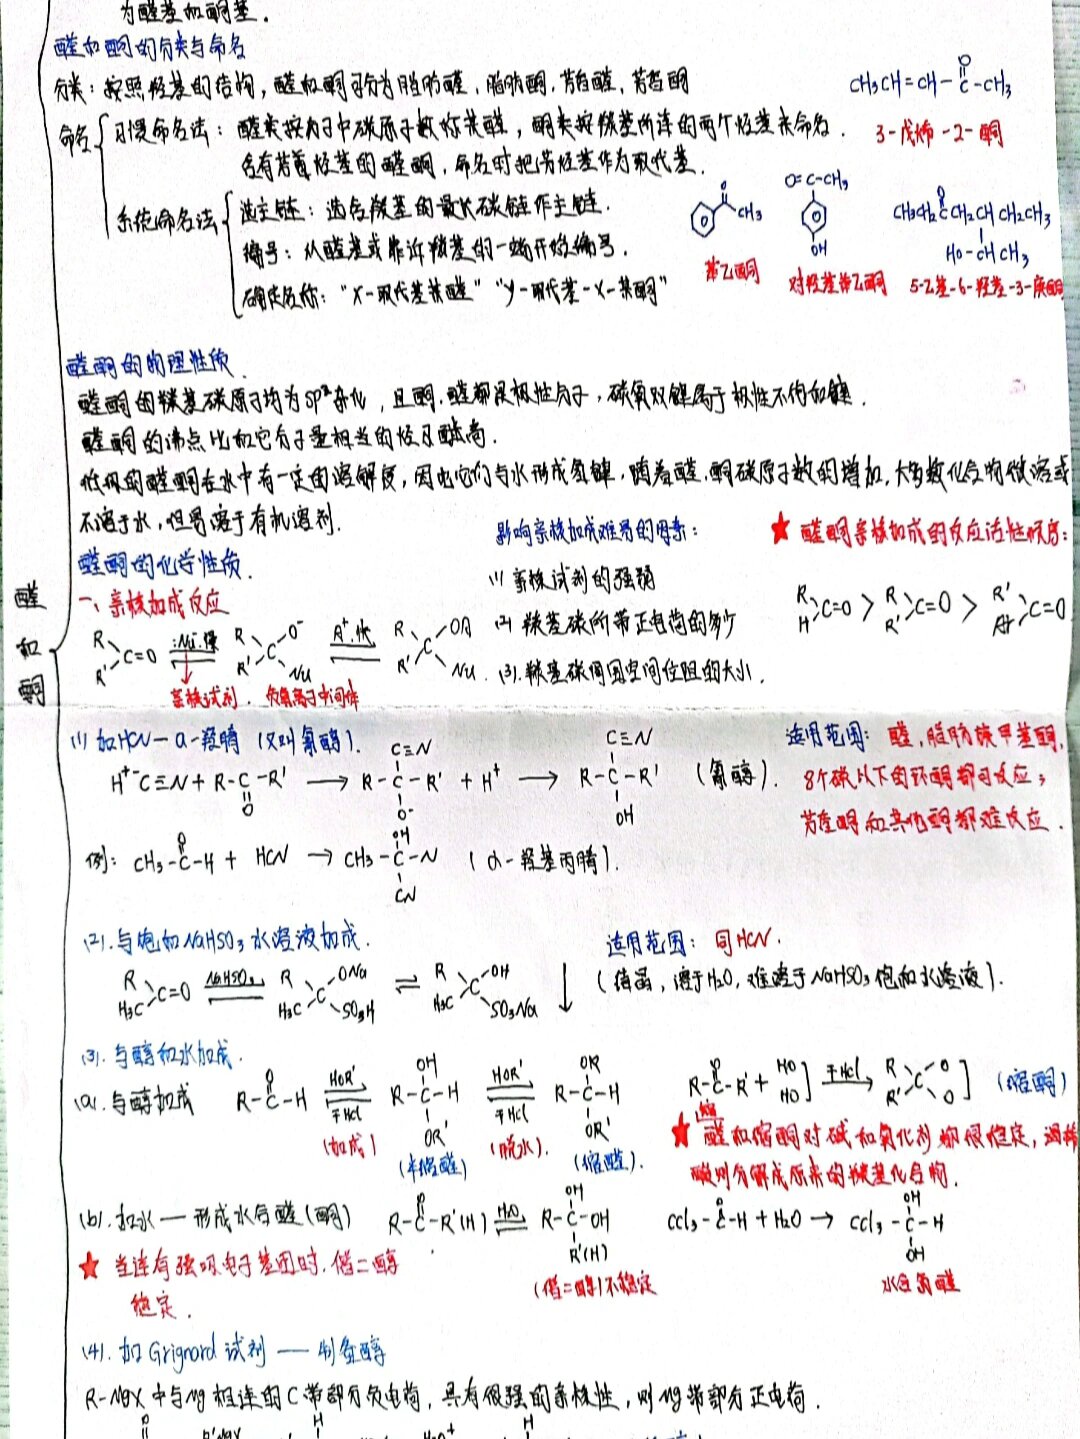 为醛基和酮基.
醛和酮的分类与命名
分类：按照烃基的结构，醛和酮可分为脂肪醛，脂肪酮，芳香醛，芳香酮
CH₃CH=CH-C-CH₃
O
3-戊烯-2-酮
命名
习惯命名法：醛类按分子中碳原子数称某醛，酮类按羰基所连的两个烃基来命名.
含有芳香烃基的醛酮，命名时把芳烃基作为取代基.
系统命名法
选主链：选含羰基的最长碳链作主链.
编号：从醛基或靠近羰基的一端开始编号.
确定名称："X-取代基某醛" "y-取代基-x-某酮"
O
CH₃
苯乙酮
O=C-CH₃
OH
对羟基苯乙酮
O
CH₃CH₂CCH₂CHCH₂CH₃
HO-CHCH₃
5-乙基-6-羟基-3-庚酮
醛酮的物理性质.
醛酮的羰基碳原子均为sp²杂化，且酮.醛都是极性分子，碳氧双键属于极性不饱和键.
醛酮的沸点比和它分子量相当的烃及醚高.
低级的醛酮在水中有一定的溶解度，因为它们与水形成氢键，随着醛.酮碳原子数的增加，大多数化合物微溶或
不溶于水，但易溶于有机溶剂.
醛酮的化学性质.
醛和酮
一、亲核加成反应
R R' C=O :Nu⁻.慢 R R' C O⁻ Nu A⁺.快 R R' C OA Nu
亲核试剂. 负氧离子中间体
影响亲核加成难易的因素：
(1) 亲核试剂的强弱
(2) 羰基碳所带正电荷的多少
(3).羰基碳周围空间位阻的大小.
★ 醛酮亲核加成的反应活性顺序：
R H C=O > R R' C=O > R' Ar C=O
(1) 加HCN — α-羟腈（又叫氰醇）.
H⁺⁻C≡N + R-C-R' → R-C-R' + H⁺ → R-C-R' （氰醇）.
O C≡N O⁻ C≡N OH
适用范围：醛，脂肪族甲基酮，
8个碳以下的环酮都可反应；
芳香酮和其他酮都难反应.
例：CH₃-C-H + HCN → CH₃-C-N （α-羟基丙腈）.
O OH CN
(2).与饱和NaHSO₃水溶液加成.
适用范围：同HCN.
R H₃C C=O NaHSO₃ R H₃C C ONa SO₃H ⇌ R H₃C C OH SO₃Na ↓
（结晶，溶于H₂O，难溶于NaHSO₃饱和水溶液）.
(3).与醇和水加成.
(a).与醇加成
R-C-H HOR' 干HCl R-C-H HOR' 干HCl R-C-H
O OH OR' OR OR'
（加成）（半缩醛）（脱水）.（缩醛）.
R-C-R' + HO HO 干HCl R R' C O O （缩酮）
★ 缩醛和缩酮对碱和氧化剂都很稳定，遇稀
酸则分解成原来的羰基化合物.
(b).加水 — 形成水合醛（酮） R-C-R'(H) H₂O R-C-OH
O OH R'(H)
（偕二醇）不稳定
CCl₃-C-H + H₂O → CCl₃-C-H
O OH OH
水合氯醛
★ 当连有强吸电子基团时.偕二醇
稳定.
(4).加Grignard试剂 — 制备醇
R-MgX中与Mg相连的C带部分负电荷，具有很强的亲核性，则Mg带部分正电荷.